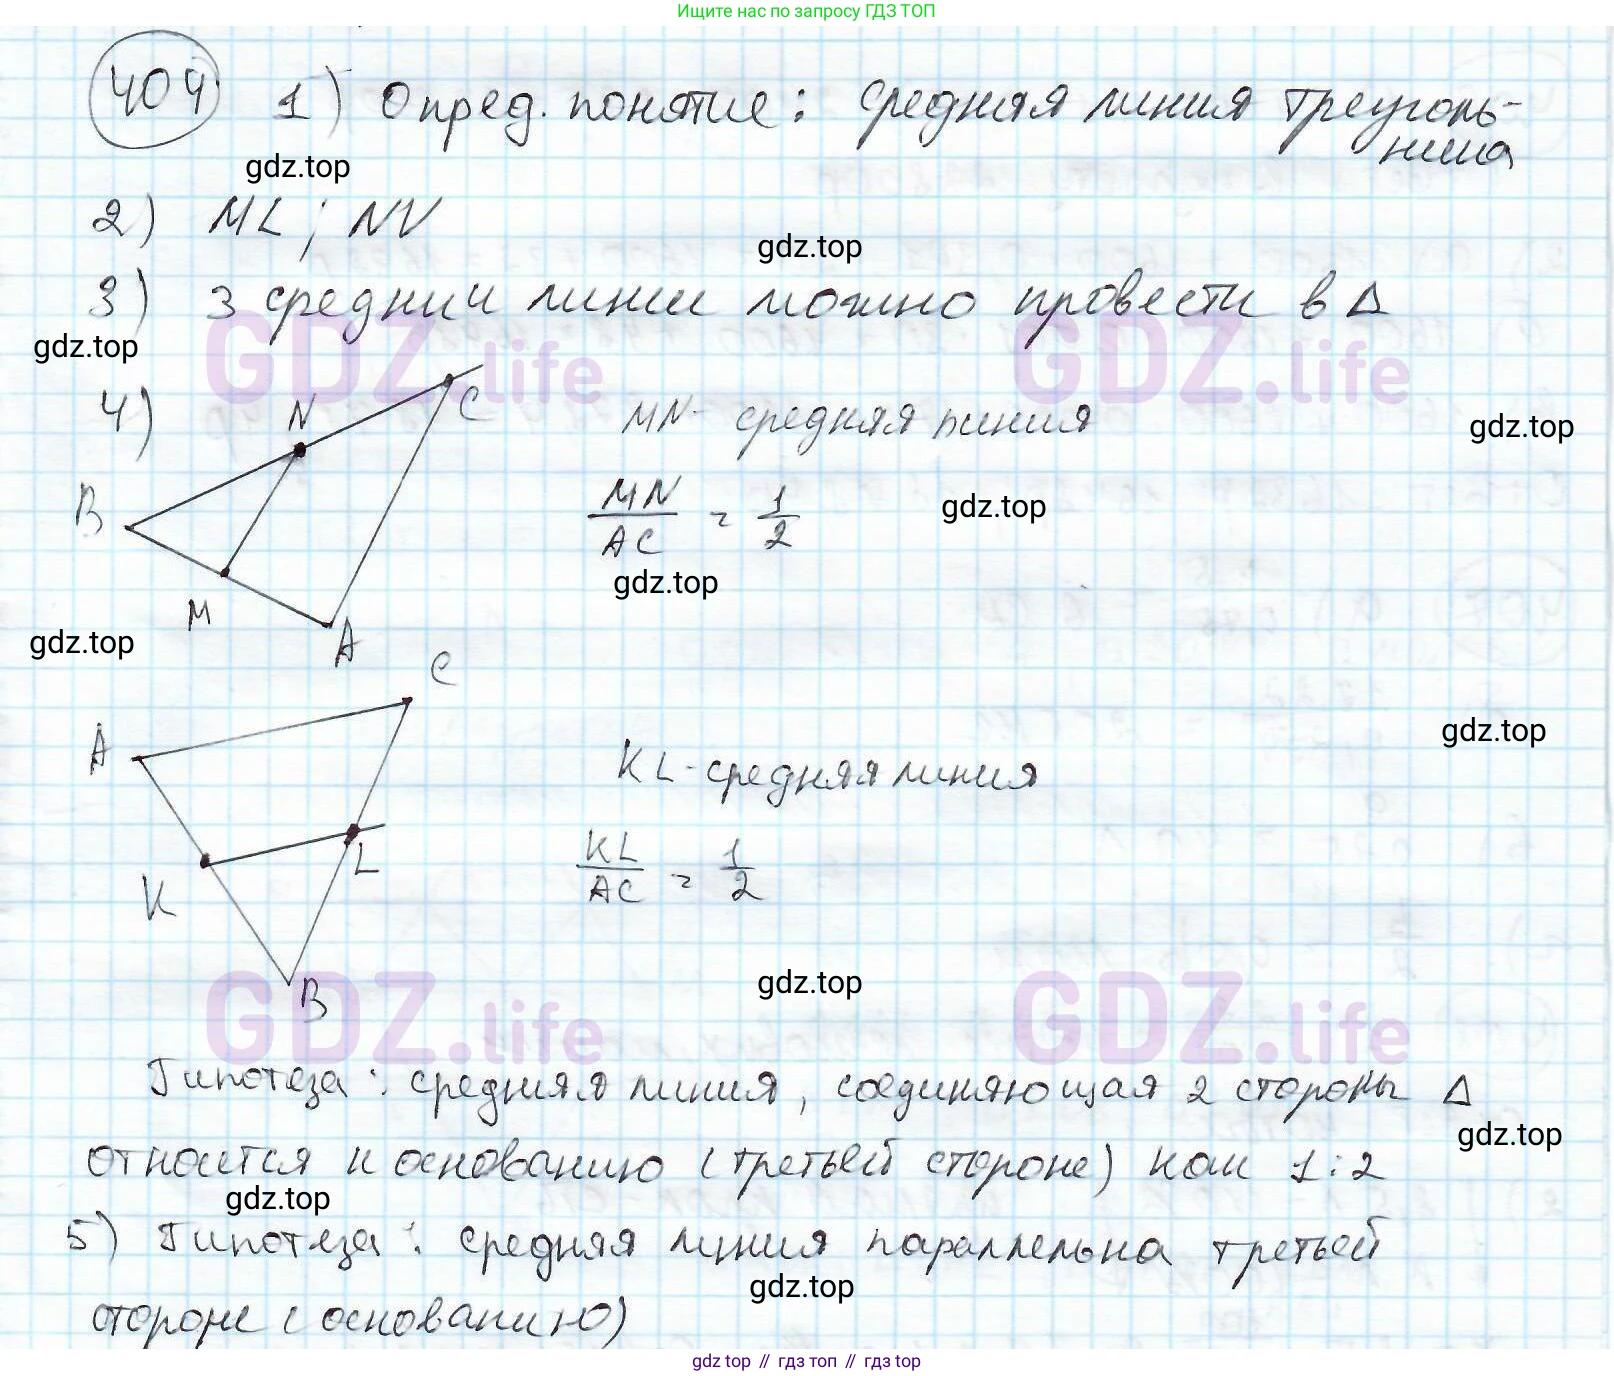 Ищите нас по запросу ГДЗ ТОП
404 1) Опред. понятие: средняя линия треуголь-
ника
gdz.top
2) ML; NV
gdz.top
3) 3 средний линии можно провести в Δ
gdz.top
GDZ.life GDZ.life
4) N C MN - средняя линия
gdz.top
B MN/AC = 1/2
gdz.top
gdz.top
M
gdz.top
A
C
A
gdz.top
KL - средняя линия
K L KL/AC = 1/2
gdz.top
B
GDZ.life GDZ.life
Гипотеза: средняя линия, соединяющая 2 стороны Δ
gdz.top
относится к основанию (третьей стороне) как 1:2
gdz.top
5) Гипотеза: средняя линия параллельна третьей
gdz.top
стороне (основанию)
gdz top // гдз топ // гдз top